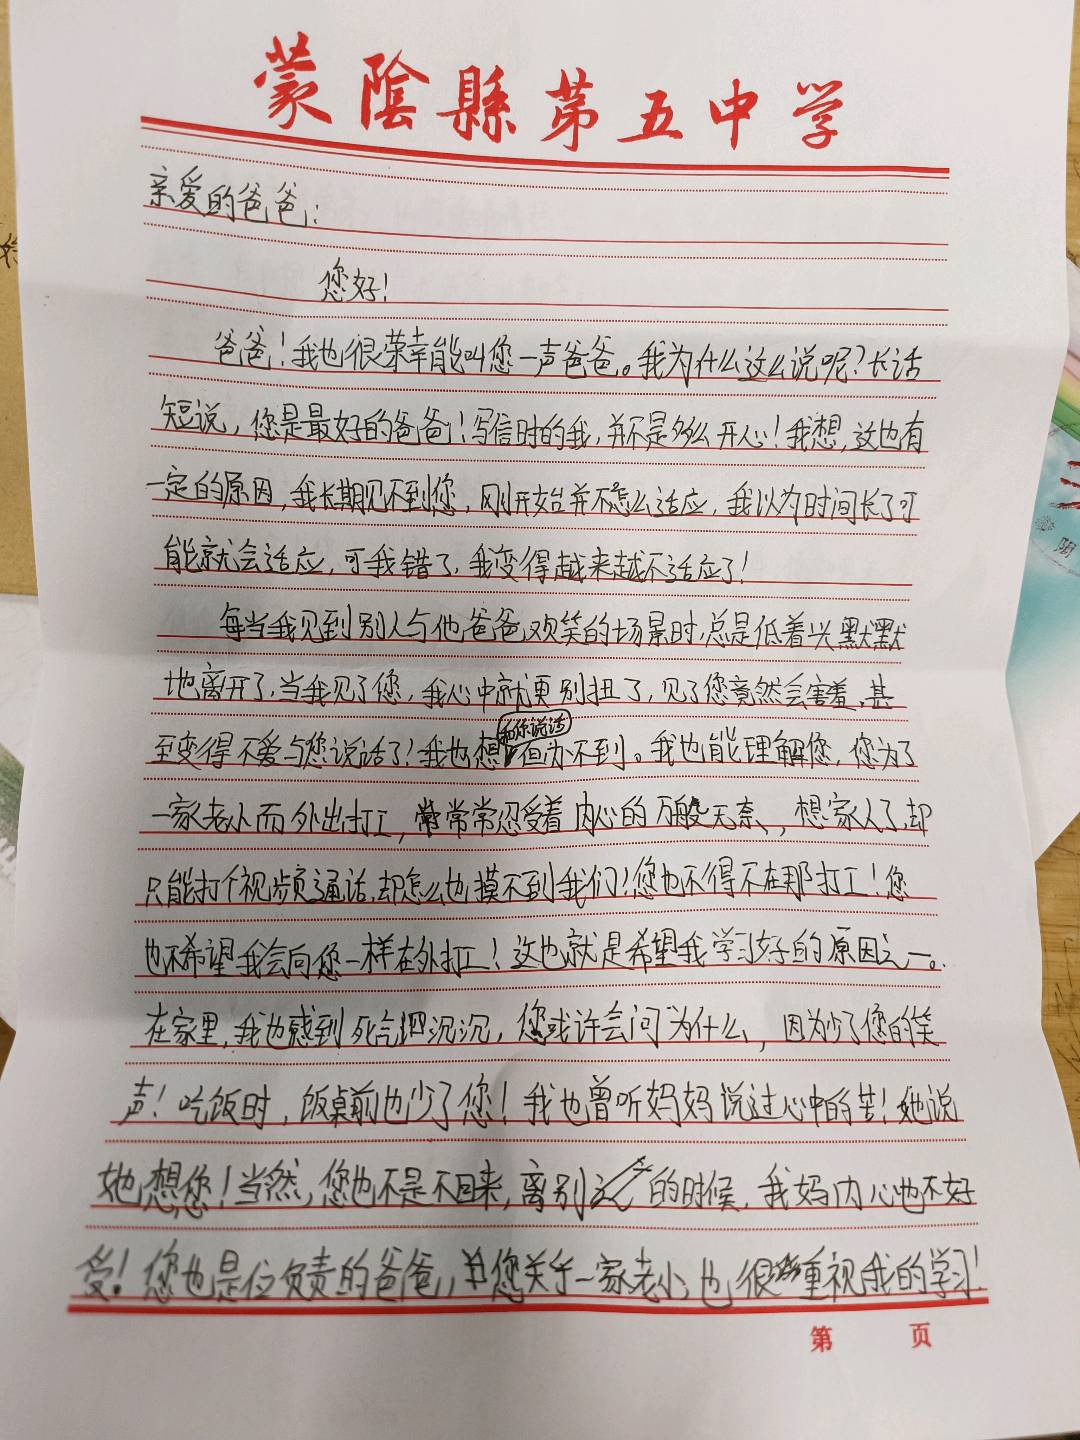 蒙陰縣苐五中学
亲爱的爸爸:
您好!
爸爸!我也很荣幸能叫您一声爸爸。我为什么这么说呢?长话
短说,您是最好的爸爸!写信时的我,并不是多么开心!我想,这也有
一定的原因,我长期见不到您,刚开始并不怎么适应,我以为时间长了可
能就会适应,可我错了,我变得越来越不适应了!
每当我见到别人与他爸爸欢笑的场景时,总是低着头默默
地离开了,当我见了您,我心中就更别扭了,见了您竟然会害羞,甚
和你说话
至变得不爱与您说话了!我也想但为不到。我也能理解您,您为了
一家老小而外出打工,常常忍受着内心的万般无奈,想家人了,却
只能打个视频通话,却怎么也摸不到我们!您也不得不在那打工!您
也不希望我会向您一样在外打工!这也就是希望我学习好的原因之一。
在家里,我也感到死气沉沉,您或许会问为什么,因为少了您的笑
声!吃饭时,饭桌前也少了您!我也曾听妈妈说过心中的苦!她说
她想您!当然,您也不是不回来,离别的时候,我妈内心也不好
受!您也是位负责的爸爸,您关于一家老小,也很重视我的学习!
第 页